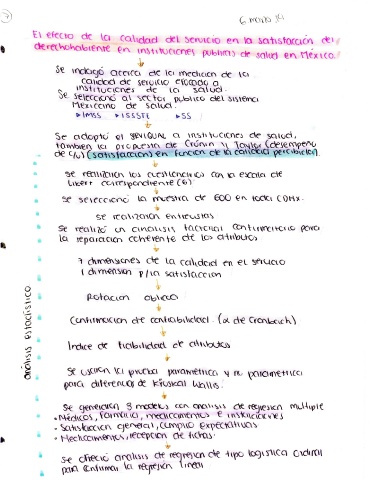 6 mayo
El efecto de la calidad del servicio en la satisfacción del
derechohabiente en instituciones públicas de salud en México.
Se indagó acerca de la medición de la
calidad de servicio enfocado a
instituciones de la salud.
Se seleccionó al sector público del sistema
Mexicano de salud.
IMSS ISSSTE SS
Se adoptó el SERVQUAL a instituciones de salud,
también la propuesta de Cronin y Taylor (desempeño
de c/u) (satisfacción) en función de la calidad percibida).
Se realizaron los cuestionarios con la escala de
Likert correspondiente (6)
Se seleccionó la muestra de 600 en toda CDMX.
Se realizaron entrevistas
Se realizó un análisis factorial confirmatorio para
la reparación coherente de los atributos
7 dimensiones de la calidad en el servicio
1 dimensión p/la satisfacción
Rotación oblicua
Confirmación de confiabilidad. (α de Cronbach)
Índice de fiabilidad de atributos
Se usaron la prueba paramétrica y no paramétrica
para diferencias de Kruskal Wallis.
Se generaron 3 modelos con análisis de regresión múltiple
• Médicos, Familia, medicamentos e instalaciones
• Satisfacción general, cumplió Expectativas
• Medicamentos, recepción de fichas.
Se ofreció análisis de regresión de tipo logística Ordinal
para confirmar la regresión lineal
análisis estadístico